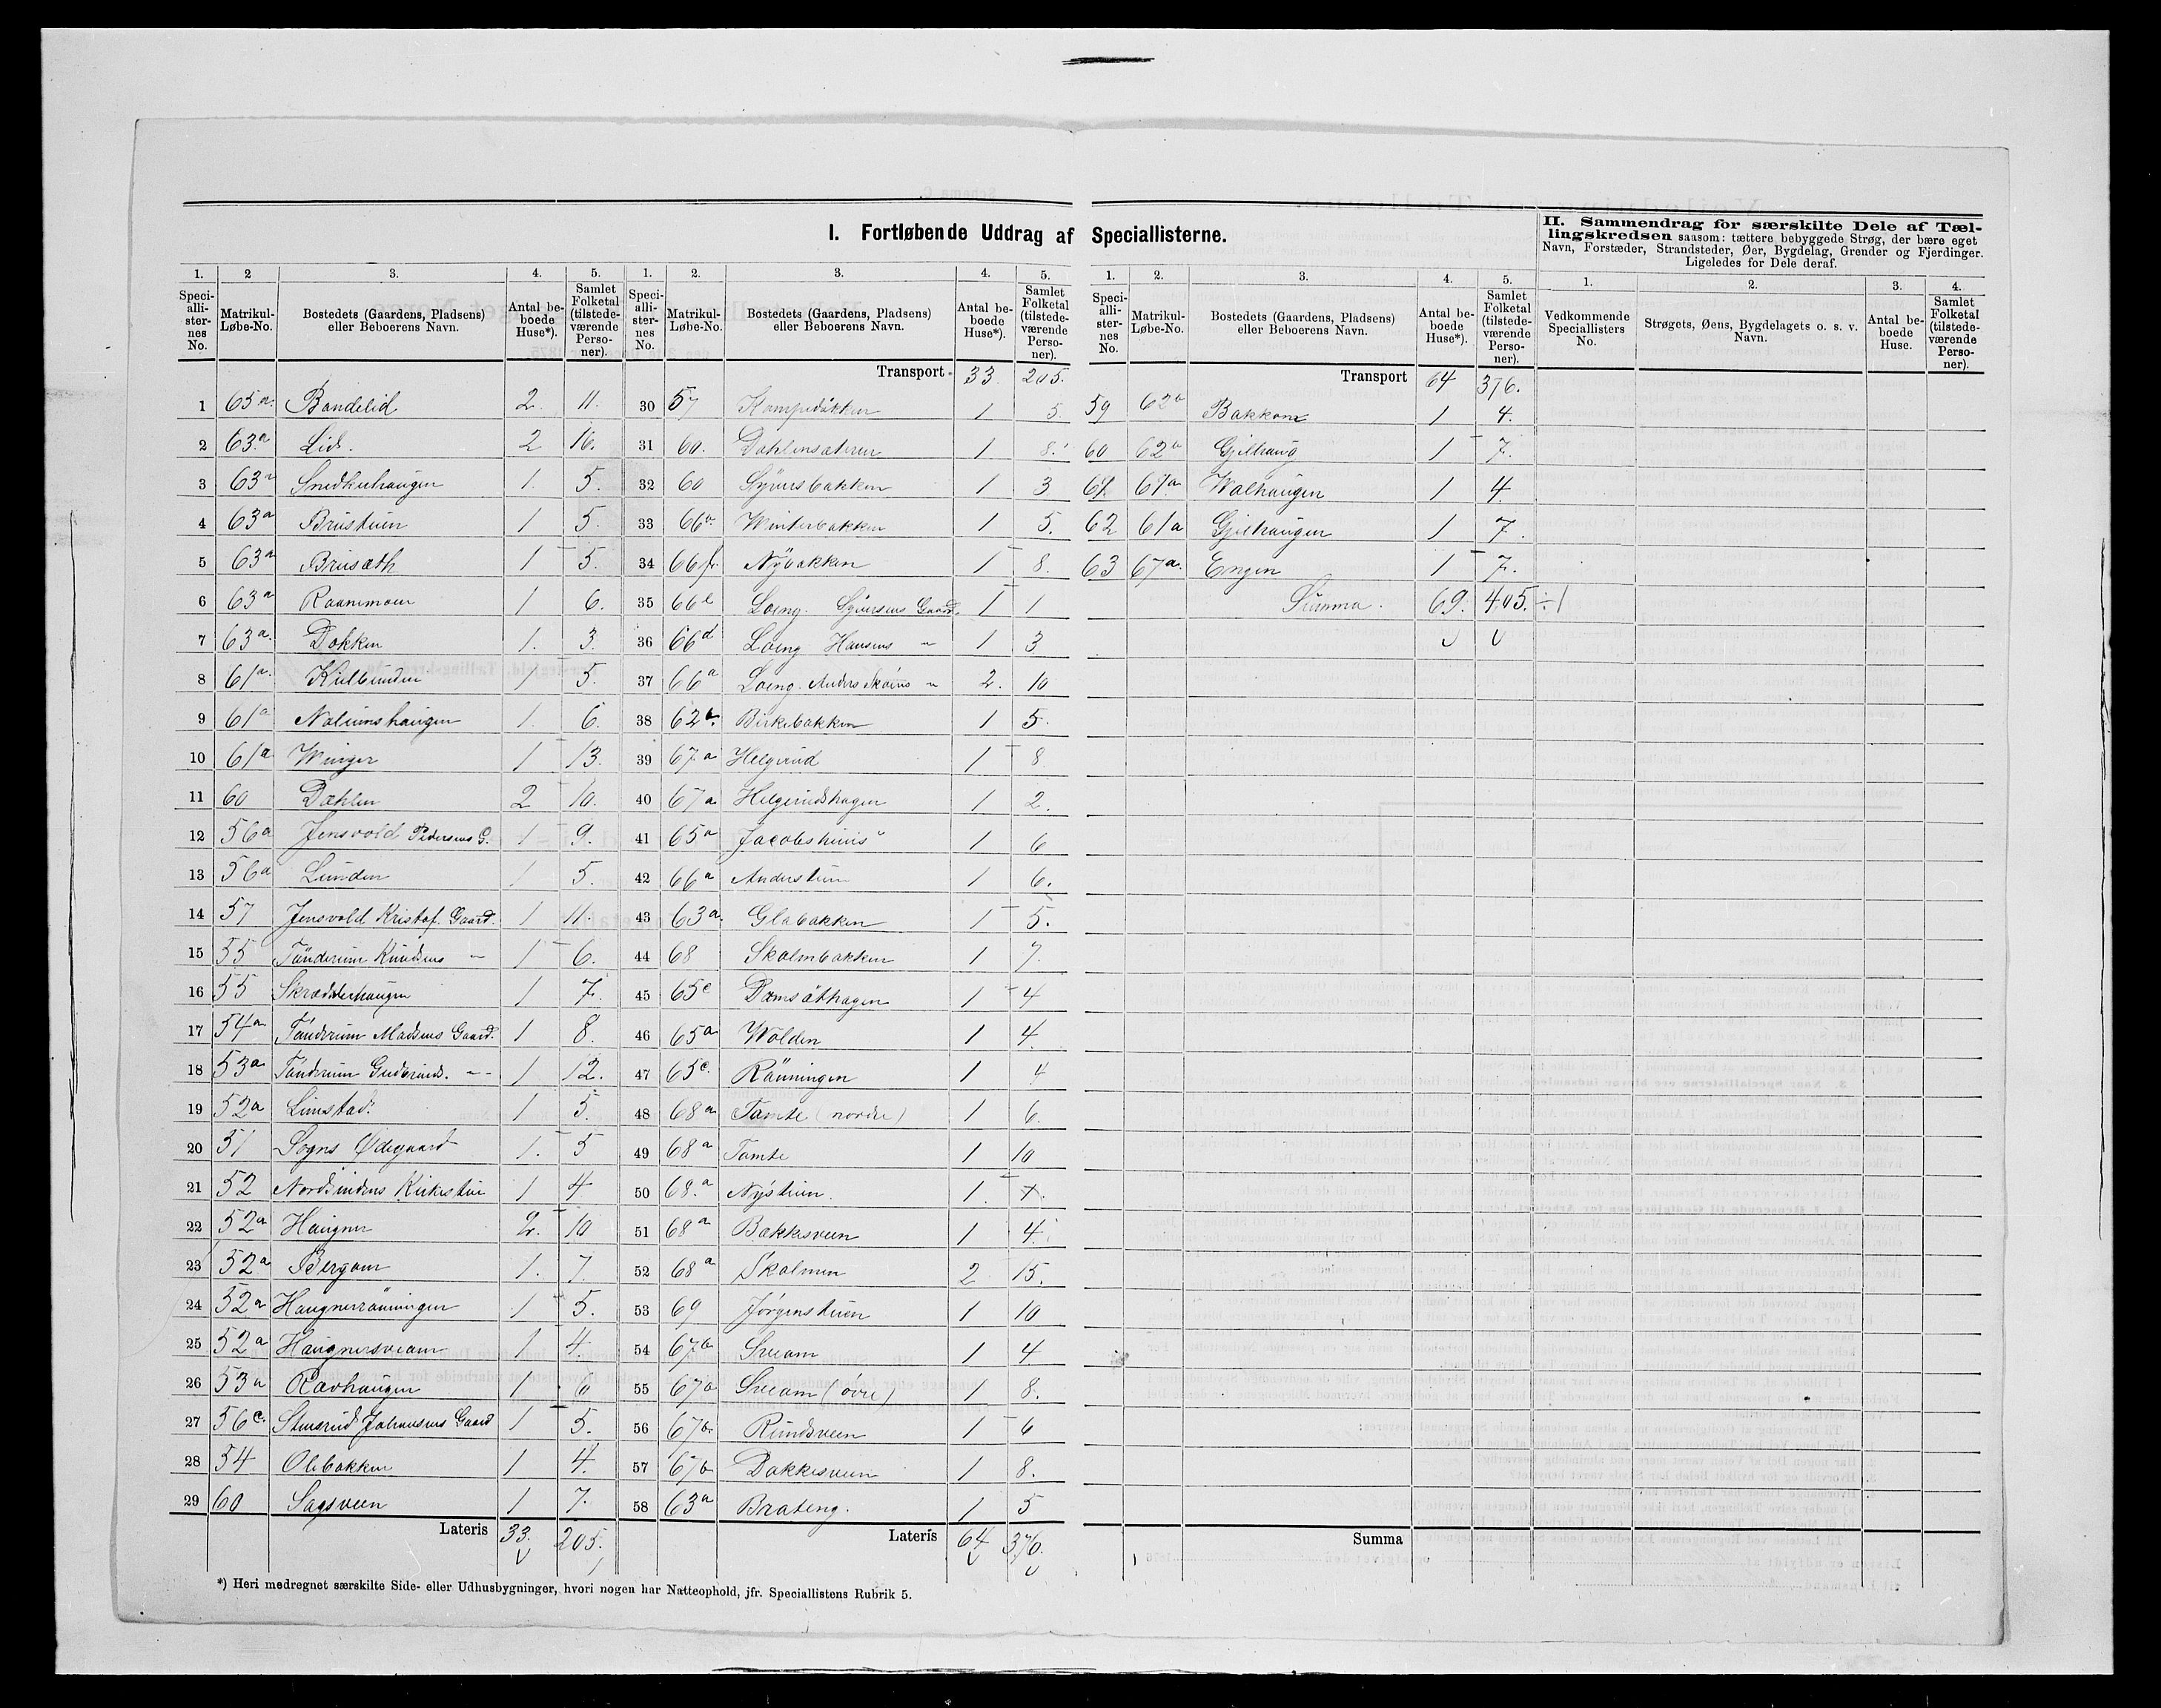 I. Fortløbende Uddrag af Speciallisterne.
II. Sammendrag for særskilte Dele af Tællingskredsen saasom: tættere bebyggede Strøg, der bære eget Navn, Forstæder, Strandsteder, Øer, Bygdelag, Grender og Fjerdinger. Ligeledes for Dele deraf.
1. 2 3. 4. 5.
Speciallisternes No. Matrikul-Løbe-No. Bostedets (Gaardens, Pladsens) eller Beboerens Navn. Antal beboede Huse*). Samlet Folketal (tilstedeværende Personer).
1 65a. Bandelid 2. 11.
2 63a Lid. 2 16.
3 63a Snedkerhaugen 1. 5.
4 63a Brustuen 1 5.
5 63a Brusæth 1 5.
6 63a Raanemoen 1 6.
7 63a. Dokken 1. 3.
8 61a. 1 5.
9 61a 1. 6.
10 61a Winger 1 13.
11 60 Dahlen 2 10.
12 56a Jensvold Pedersens G. 1 9.
13 56a Lunden 1 5.
14 57 Jensvold Kristof. Gaard. 1 11.
15 55 Tönderum Knudsens " 1 6.
16 55 Skrædderhaugen 1 7.
17 54a Tönderum Madsens Gaard. 1 8.
18 53a Tönderum Gudbrands. " 1 12.
19 52a Linstad. 1 5.
20 51 Sogns Ødegaard 1. 5
21 52 Nordsindens Kirkestue 1 4
22 52a Haugner 2. 10
23 52a Bergom 1. 7.
24 52a Haugnerrönningen 1 5.
25 52a Haugnersveom 1 4.
26 53a Ravhaugen 1 6
27 56c. Stensrud Johansens Gaard 1 5.
28 54 Olebakken 1 4.
29 60 Sagsveen 1 7.
Lateris 33. 205.
1. 2. 3. 4. 5.
Speciallisternes No. Matrikul-Løbe-No. Bostedets (Gaardens, Pladsens) eller Beboerens Navn. Antal beboede Huse*). Samlet Folketal (tilstedeværende Personer).
Transport 33 205.
30 57 Kampebakken 1 5.
31 60. Dahlensæteren 1 8.
32 60 Syversbakken 1 3
33 66 Winterbakken 1 5.
34 66 Nÿbakken 1 8.
35 66 Loeng. Syversens Gaard. 1 1
36 66d Loeng Hansens " 1 3
37 66a Loeng. Anders " 2. 10
38 62 Birkebakken 1 5.
39 67.a Helgerud 1 8
40 67a Helgerudshagen 1 2.
41 65a Jacobshuus 1 6
42 66a Anderstuen 1 6.
43 63a. Glabakken 1 5.
44 68 Skolmbakken 1 7.
45 65c Dæmsäthagen 1 4
46 65a Wolden 1 4.
47 65c. Rönningen 1 4
48 68a Tomte (nordre) 1 6.
49 68a Tomte 1 10
50 68.a Nystuen. 1. 7.
51 68a Bakkesveen 1 4.
52 68a Skolmen 2 15.
53 69 Jørgenstuen 1 10
54 67b Sveom 1 4
55 67b Sveom (övre) 1 8.
56 67b Rundsveen 1 6
57 67b Dokkesveen 1 8.
58 63a Brateng. 1 5
Lateris 64 376.
1. 2. 3. 4. 5.
Speciallisternes No. Matrikul-Løbe-No. Bostedets (Gaardens, Pladsens) eller Beboerens Navn. Antal beboede Huse*). Samlet Folketal (tilstedeværende Personer).
Transport 64 376.
59 62 Bakkom 1 4.
60 62 Gjelhaug 1 7.
61 67a Walhaugen 1 4.
62 61a Gjelhaugen 1 7.
63 67a. Engen 1 7.
Summa. 69. 405. ÷1
Summa
1. 2. 3. 4.
Vedkommende Speciallisters No. Strøgets, Øens, Bygdelagets o. s. v. Navn. Antal beboede Huse. Samlet Folketal (tilstedeværende Personer).
*) Heri medregnet særskilte Side- eller Udhusbygninger, hvori nogen har Natteophold, jfr. Speciallistens Rubrik 5.